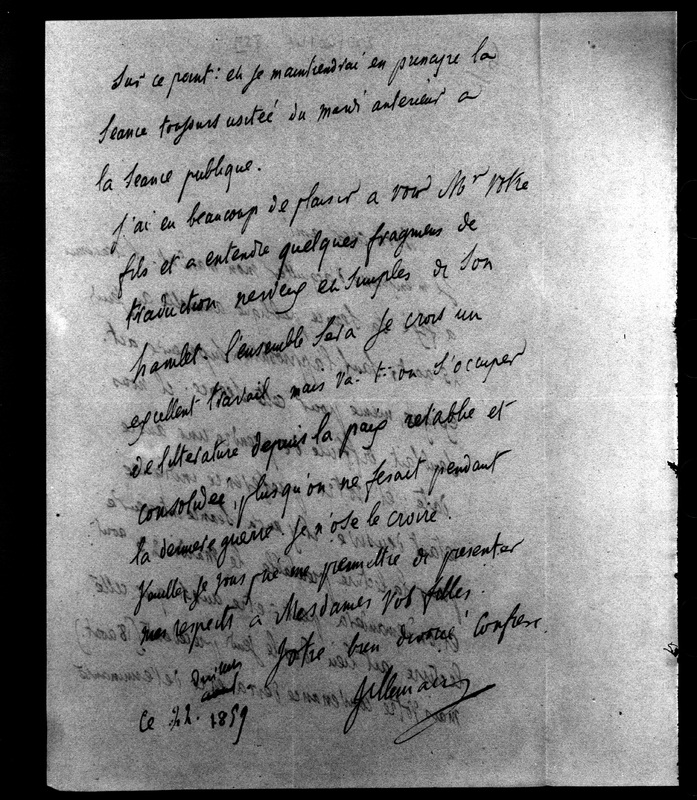 Sur ce point : et je maintiendrai en principe la
séance toujours usitée du mardi anterieur a
la séance publique.
J'ai eu beaucoup de plaisir a voir Mr votre
fils et a entendre quelques fragmens de
traduction nerveux et simples de son
hamlet l'ensemble sera je crois un
excellent travail mais va-t-on s'occuper
de litterature depuis la paix retablie et
consolidée, plus qu'on ne fesait pendant
la derniere guerre je n'ose le croire.
Veuillez je vous me permettre de presenter
mes respects a Mesdames vos filles.
Votre bien devoué confrere.
Villemain
Ce 22. 1859